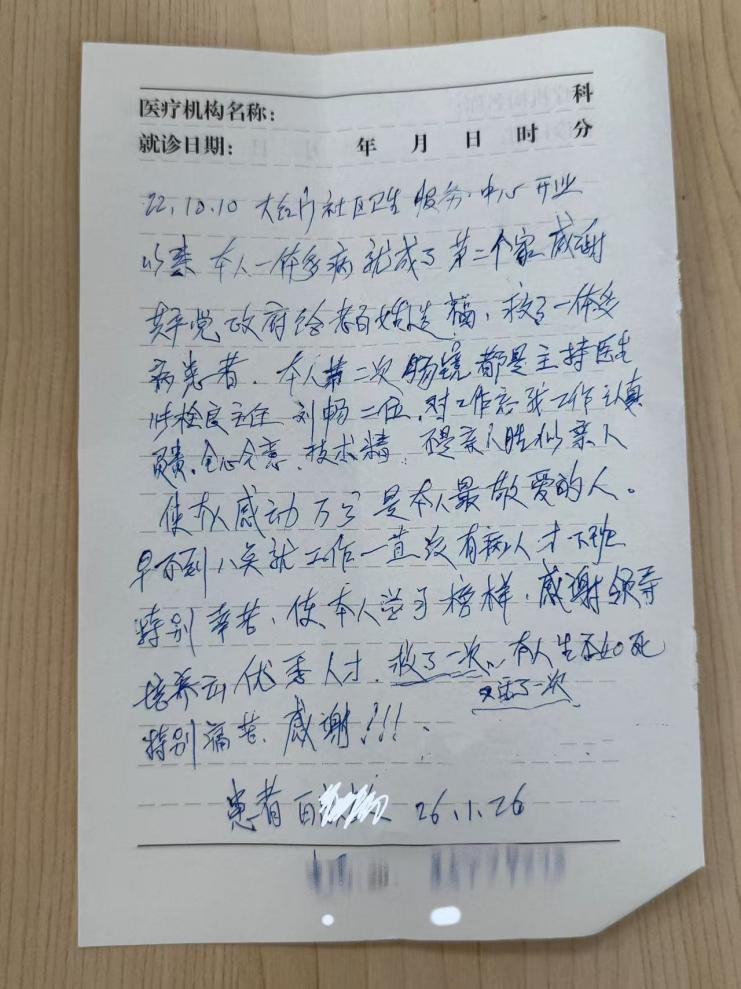 医疗机构名称： 科
就诊日期： 年 月 日 时 分
22.10.10 大红门社区卫生服务中心开业
以来 本人一体多病就成了第二个家感谢
共产党政府给老百姓造福，救了一体多
病患者．本人第二次肠镜都是主持医生
主任 刘畅二位．对工作 工作认真
负责．全心全意．技术精．不是亲人胜似亲人
使本人感动万分 是本人最敬爱的人。
早不到八点就工作一直没有病人才下班
特别辛苦．使本人学了榜样．感谢领导
培养出优秀人才．救了一次．有人生不如死
又活了一次
特别痛苦．感谢！！！．
患者 26.1.26